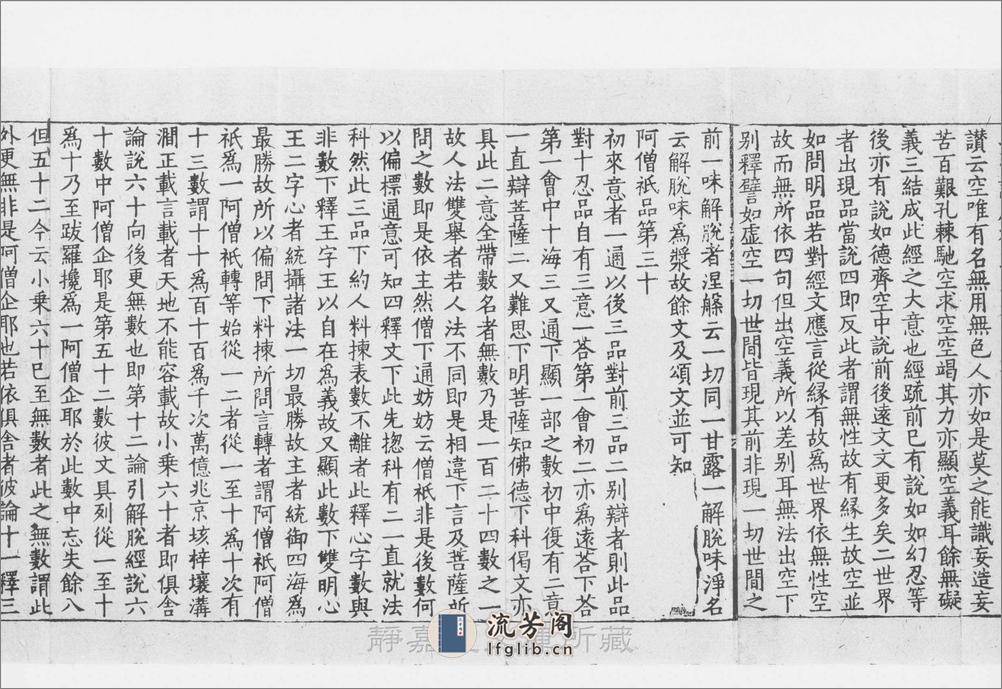 讃云空唯有名無用無色人亦如是莫之能識妄造妄
苦百艱孔棘馳空求空空竭其力亦顯空義耳餘無礙
義三結成此經之大意也經疏前已有說如如幻忍等
後亦有說如德齊空中說前後遠文文更多矣二世界
者出現品當說四即反此者謂無性故有緣生故空並
如問明品若對經文應言從緣有故為世界依無性空
故而無所依四句但出空義所以差別耳無法出空下
別釋譬如虛空一切世間皆現其前非現一切世間之
前一味解脫者涅槃云一切同一甘露一解脫味淨名
云解脫味為漿故餘文及頌文並可知
阿僧祇品第三十
初來意者一通以後三品對前三品二別辯者則此品
對十忍品自有三意一荅第一會初二亦為遠荅下荅
第一會中十海三又通下顯一部之數初中復有二意
一直辯菩薩二又難思下明菩薩知佛德下科偈文亦
具此二意全帶數名者無數乃是一百二十四數之一
故人法雙舉者若人法不同即是相違下言及菩薩所
問之數即是依主然僧下通妨妨云僧祇非是後數何
以偏標通意可知四釋文下此先揔科有二一直就法
科然此三品下約人料揀表數不離者此釋心字數與
非數下釋王字王以自在為義故又顯此數下雙明心
王二字心者統攝諸法一切最勝故主者統御四海為
最勝故所以偏問下料揀所問言轉者謂阿僧祇阿僧
祇為一阿僧祇轉等始從一二者從一至十為十次有
十三數謂十十為百十百為千次萬億兆京垓梓壤溝
澗正載言載者天地不能容載故小乘六十者即俱舍
論說六十向後更無數也即第十二論引解脫經說六
十數中阿僧企耶是第五十二數彼文具列從一至十
為十乃至跋羅攙為一阿僧企耶於此數中忘失餘八
但五十二今云小乘六十已至無數者此之無數謂此
外更無非是阿僧企耶也若依俱舍者彼論十一釋三
靜嘉
所藏
流芳阁
lfglib.cn